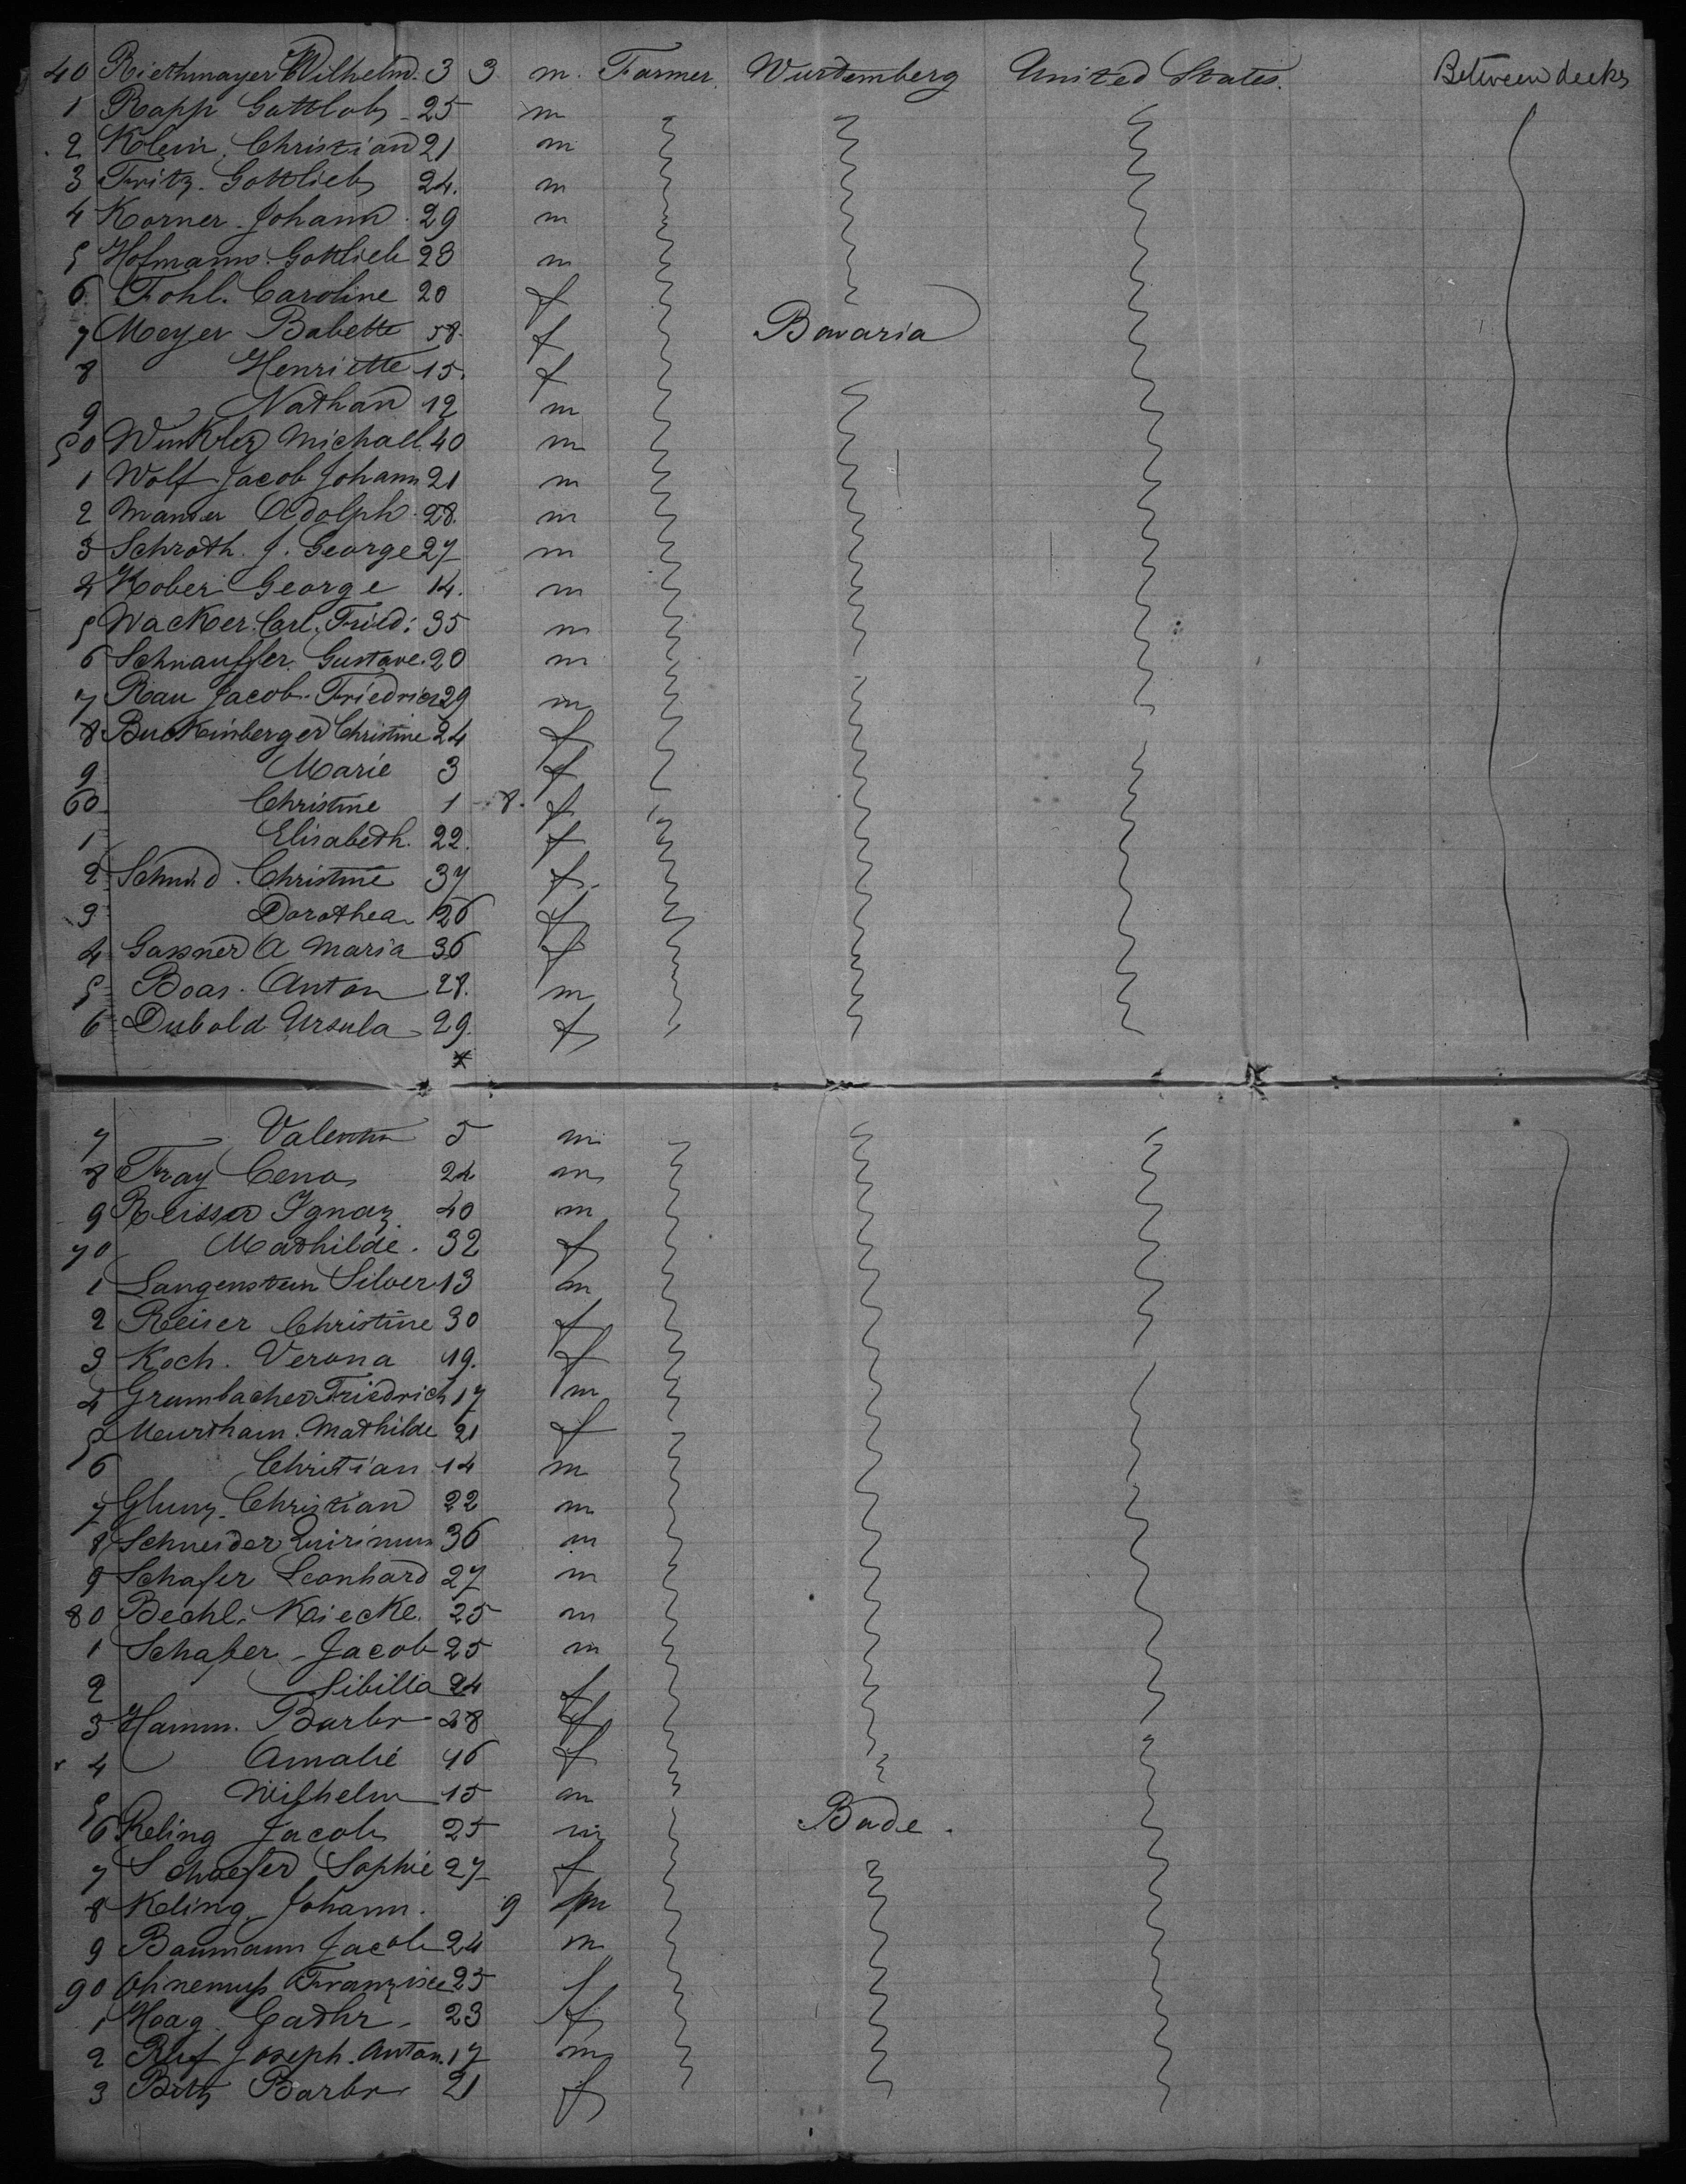 40 Riethmayer Wilhelm. 3 3 m. Farmer. Wurtemberg United States. Between decks
1 Rapp Gottlob 25 m
2 Klein, Christian 21 m
3 Fritz. Gottlieb 24. m
4 Korner. Johann. 29 m
5 Hofmann. Gottlieb 23 m
6. Fohl. Caroline 20 f
7 Meyer Babette 58. f Bavaria
8 Henriette 15. f
9 Nathan 12 m
50 Winkler Michall 40 m
1 Wolf Jacob Johann 21 m
2 Manser Adolph. 28. m
3 Schroth. J. George 27 m
4 Kober George 14. m
5 Wacker. Carl. Fried: 35 m
6 Schnauffer. Gustave. 20 m
7 Rau Jacob. Friedrich 29 m
8 Buckinberger Christine 24 f
9 Marie 3 f
60 Christine 1 8. f
1 Elisabeth. 22. f
2 Schmid. Christine 37 f.
3 Dorothea 26 f
4 Gasner A Maria 36 f
5 Boas. Anton 28. m
6 Dubold Ursula 29. f
7 Valentin 5 m
8 Fray Ceno 24 m
9 Reisser Ignaz 40 m
70 Mathilde. 32 f
1 Langenstein Silver 13 m
2 Reiser Christine 30 f
3 Koch. Verona 19. f
4 Grumbacher Friedrich 17 m
5 Meurtham. Mathilde 21 f
6 Christian 14 m
7 Glunz. Christian 22 m
8 Schneider Quirinus 36 m
9 Schafer Leonhard 27 m
80 Bechl. 25 m
1 Schafer Jacob 25 m
2 Sibilla 24 f
3 Hamm. Barbr 28 f
4 Amalie 46 f
5 Wilhelm 15 m
6 Keling Jacob 25 m Bade.
7 Schaefer Sophie 27 f
8 Keling Johann. 9 m
9 Baumann Jacob 24 m
90 Ohnemuss Franzisce 25 f
1 Haag. Cathr. 23 f
2 Ruf Joseph. Anton. 17 m
3 Bitz Barbr 21 f